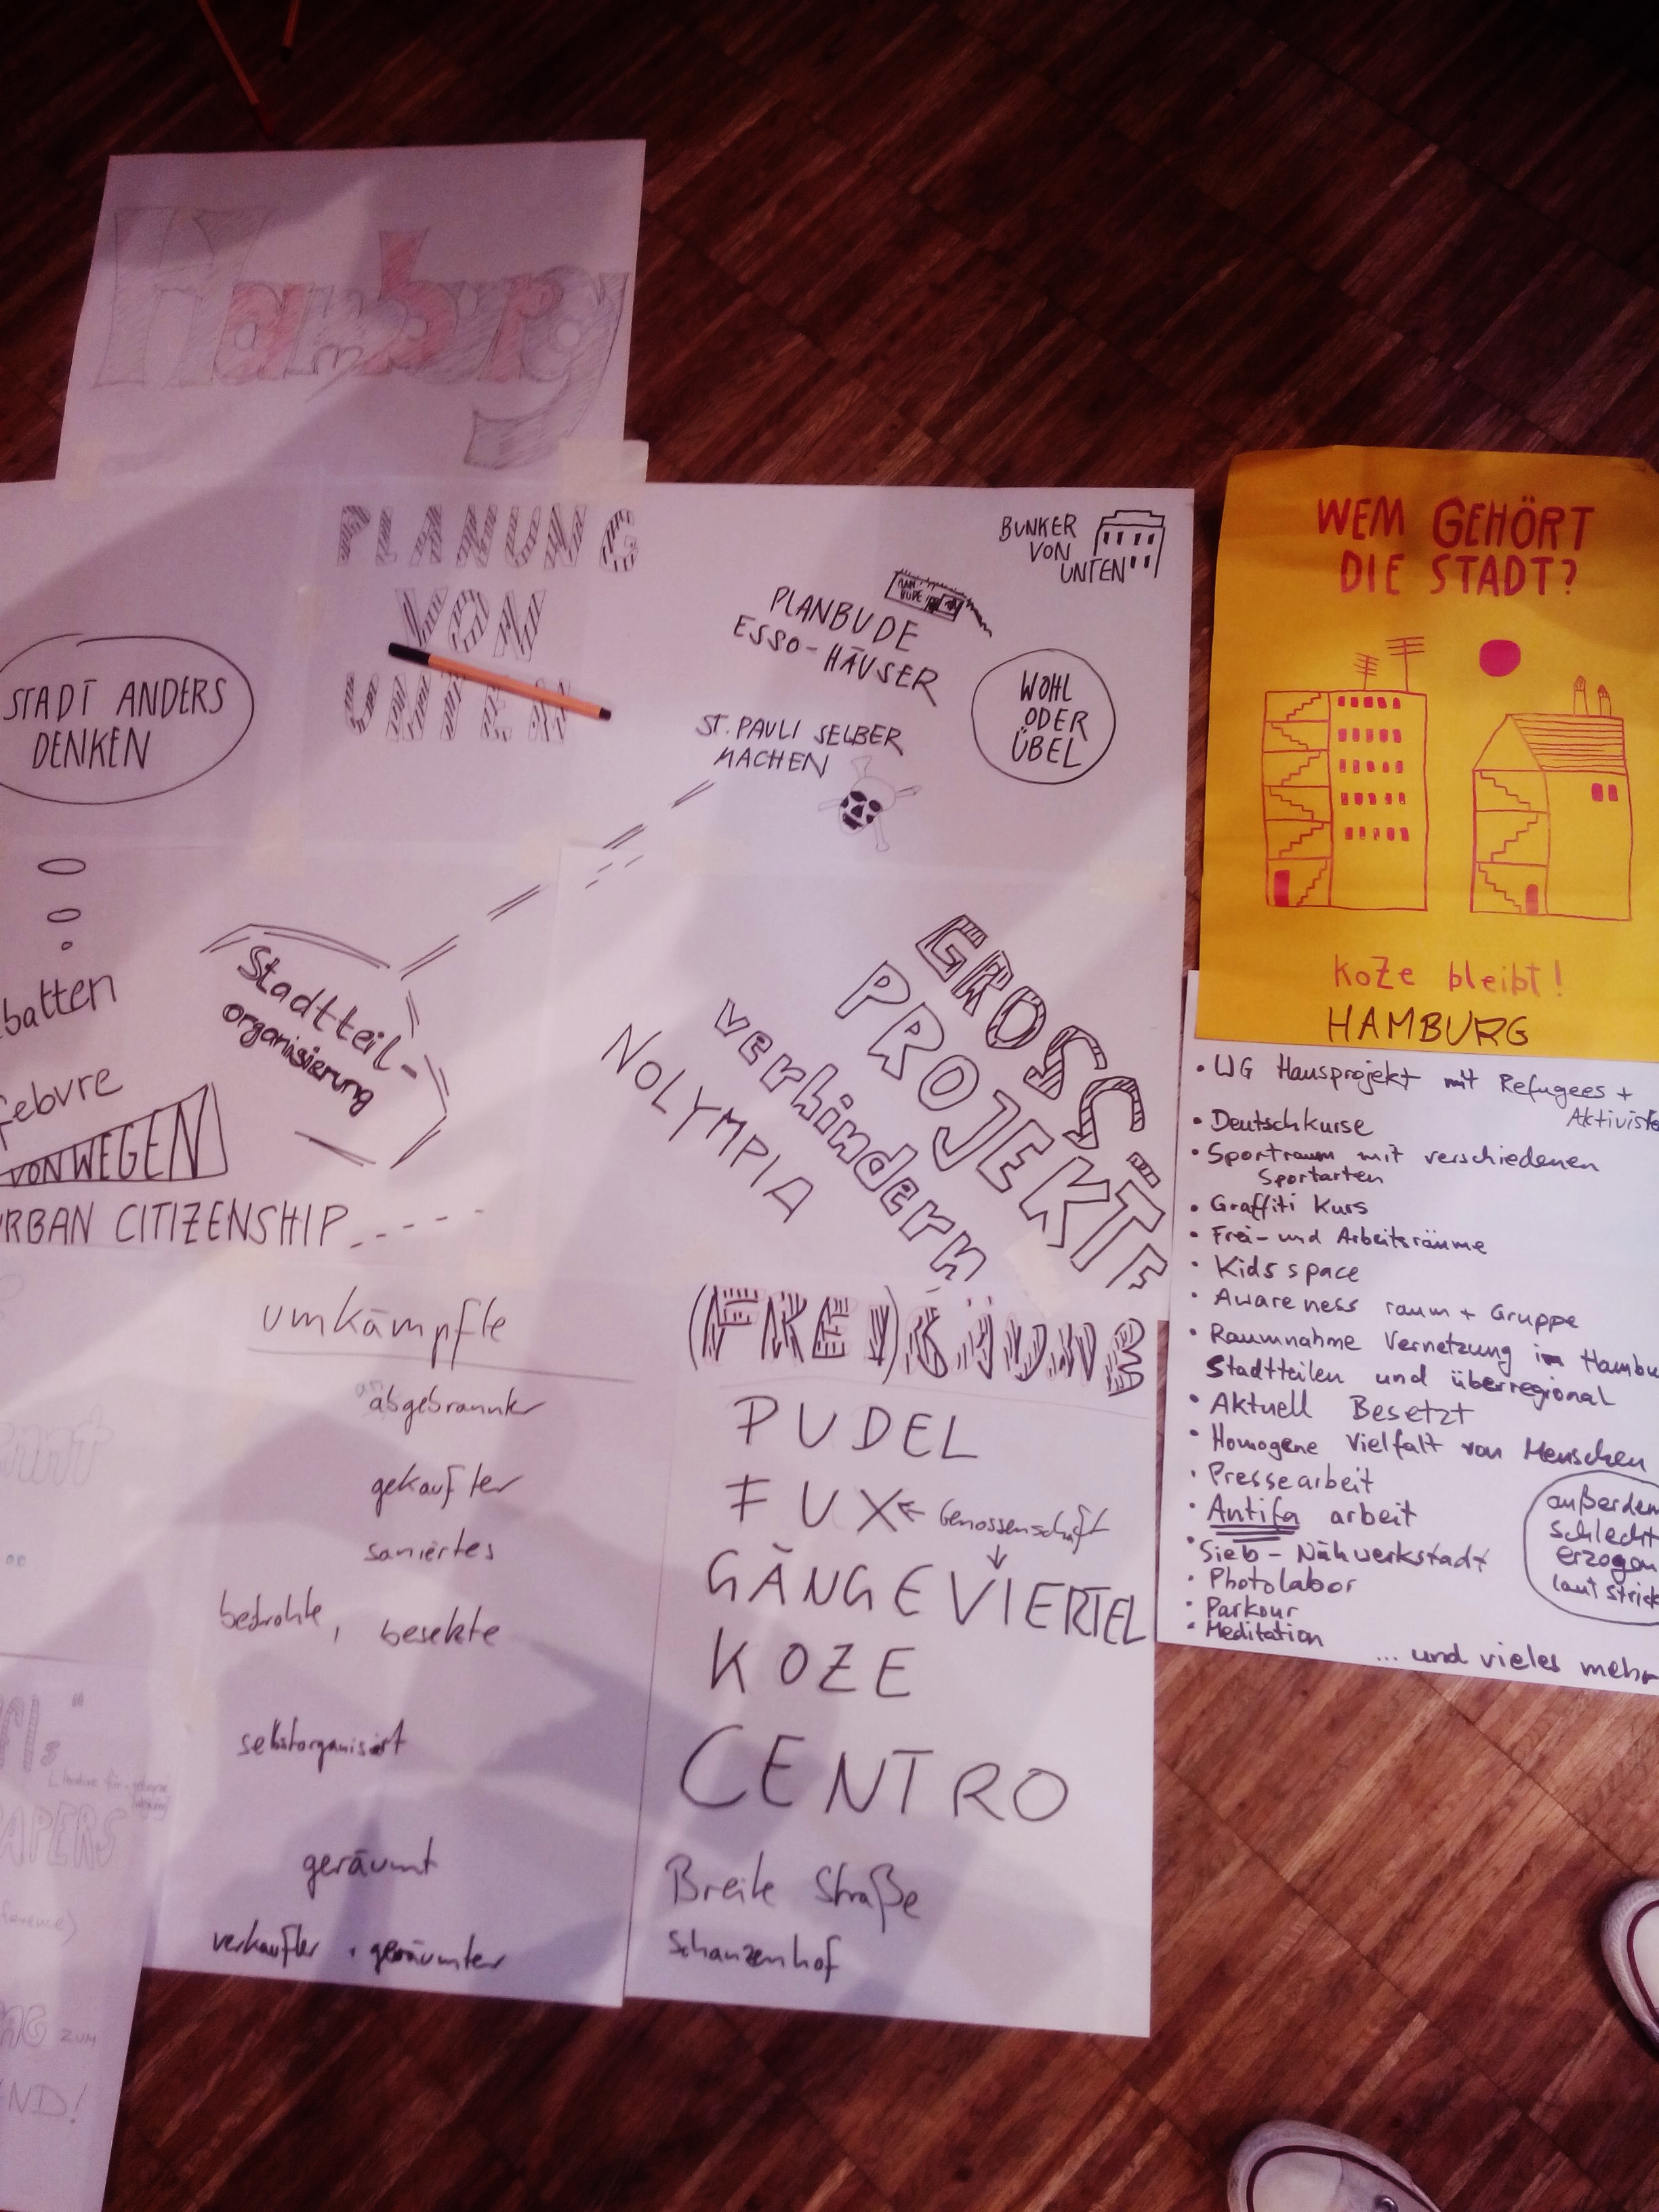 Hamburg
PLANUNG
VON
UNTEN
BUNKER
VON
UNTEN
PLANBUDE
ESSO-HÄUSER
WOHL
ODER
ÜBEL
ST. PAULI SELBER
MACHEN
STADT ANDERS
DENKEN
Stadtteil-
organisierung
VON WEGEN
URBAN CITIZENSHIP
GROSS
PROJEKTE
verhindern
NOLYMPIA
umkämpfte
(FREI)RÄUME
abgebrannter
PUDEL
gekaufter
FUX ← Genossenschaft
saniertes
GÄNGEVIERTEL
bedrohte, besetzte
KOZE
selbstorganisiert
CENTRO
geräumt
Breite Straße
verkaufter, geräumter
Schanzenhof
APERS
ZUM
WEM GEHÖRT
DIE STADT?
KoZe bleibt!
HAMBURG
• WG Hausprojekt mit Refugees +
• Deutschkurse
• Sportraum mit verschiedenen
Sportarten
• Graffiti Kurs
• Frei- und Arbeitsräume
• Kids space
• Awareness raum + Gruppe
• Raumnahme Vernetzung in
Stadtteilen und überregional
• Aktuell Besetzt
• Homogene Vielfalt von Menschen
• Pressearbeit
• Antifa arbeit
• Sieb- Nähwerkstadt
• Photolabor
• Parkour
• Meditation
außerdem
schlecht
erzogen
laut
... und vieles mehr